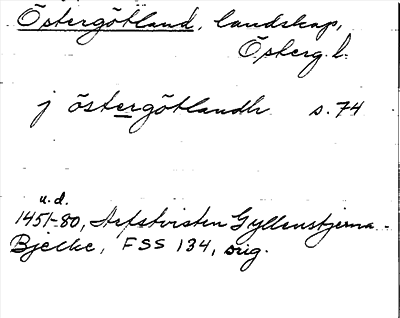 Östergötland, landskap,
Österg. l.
j östergötlandh s. 74
u. d.
1451-80, Arfstvisten Gyllenstjerna -
Bjelke, FSS 134, orig.